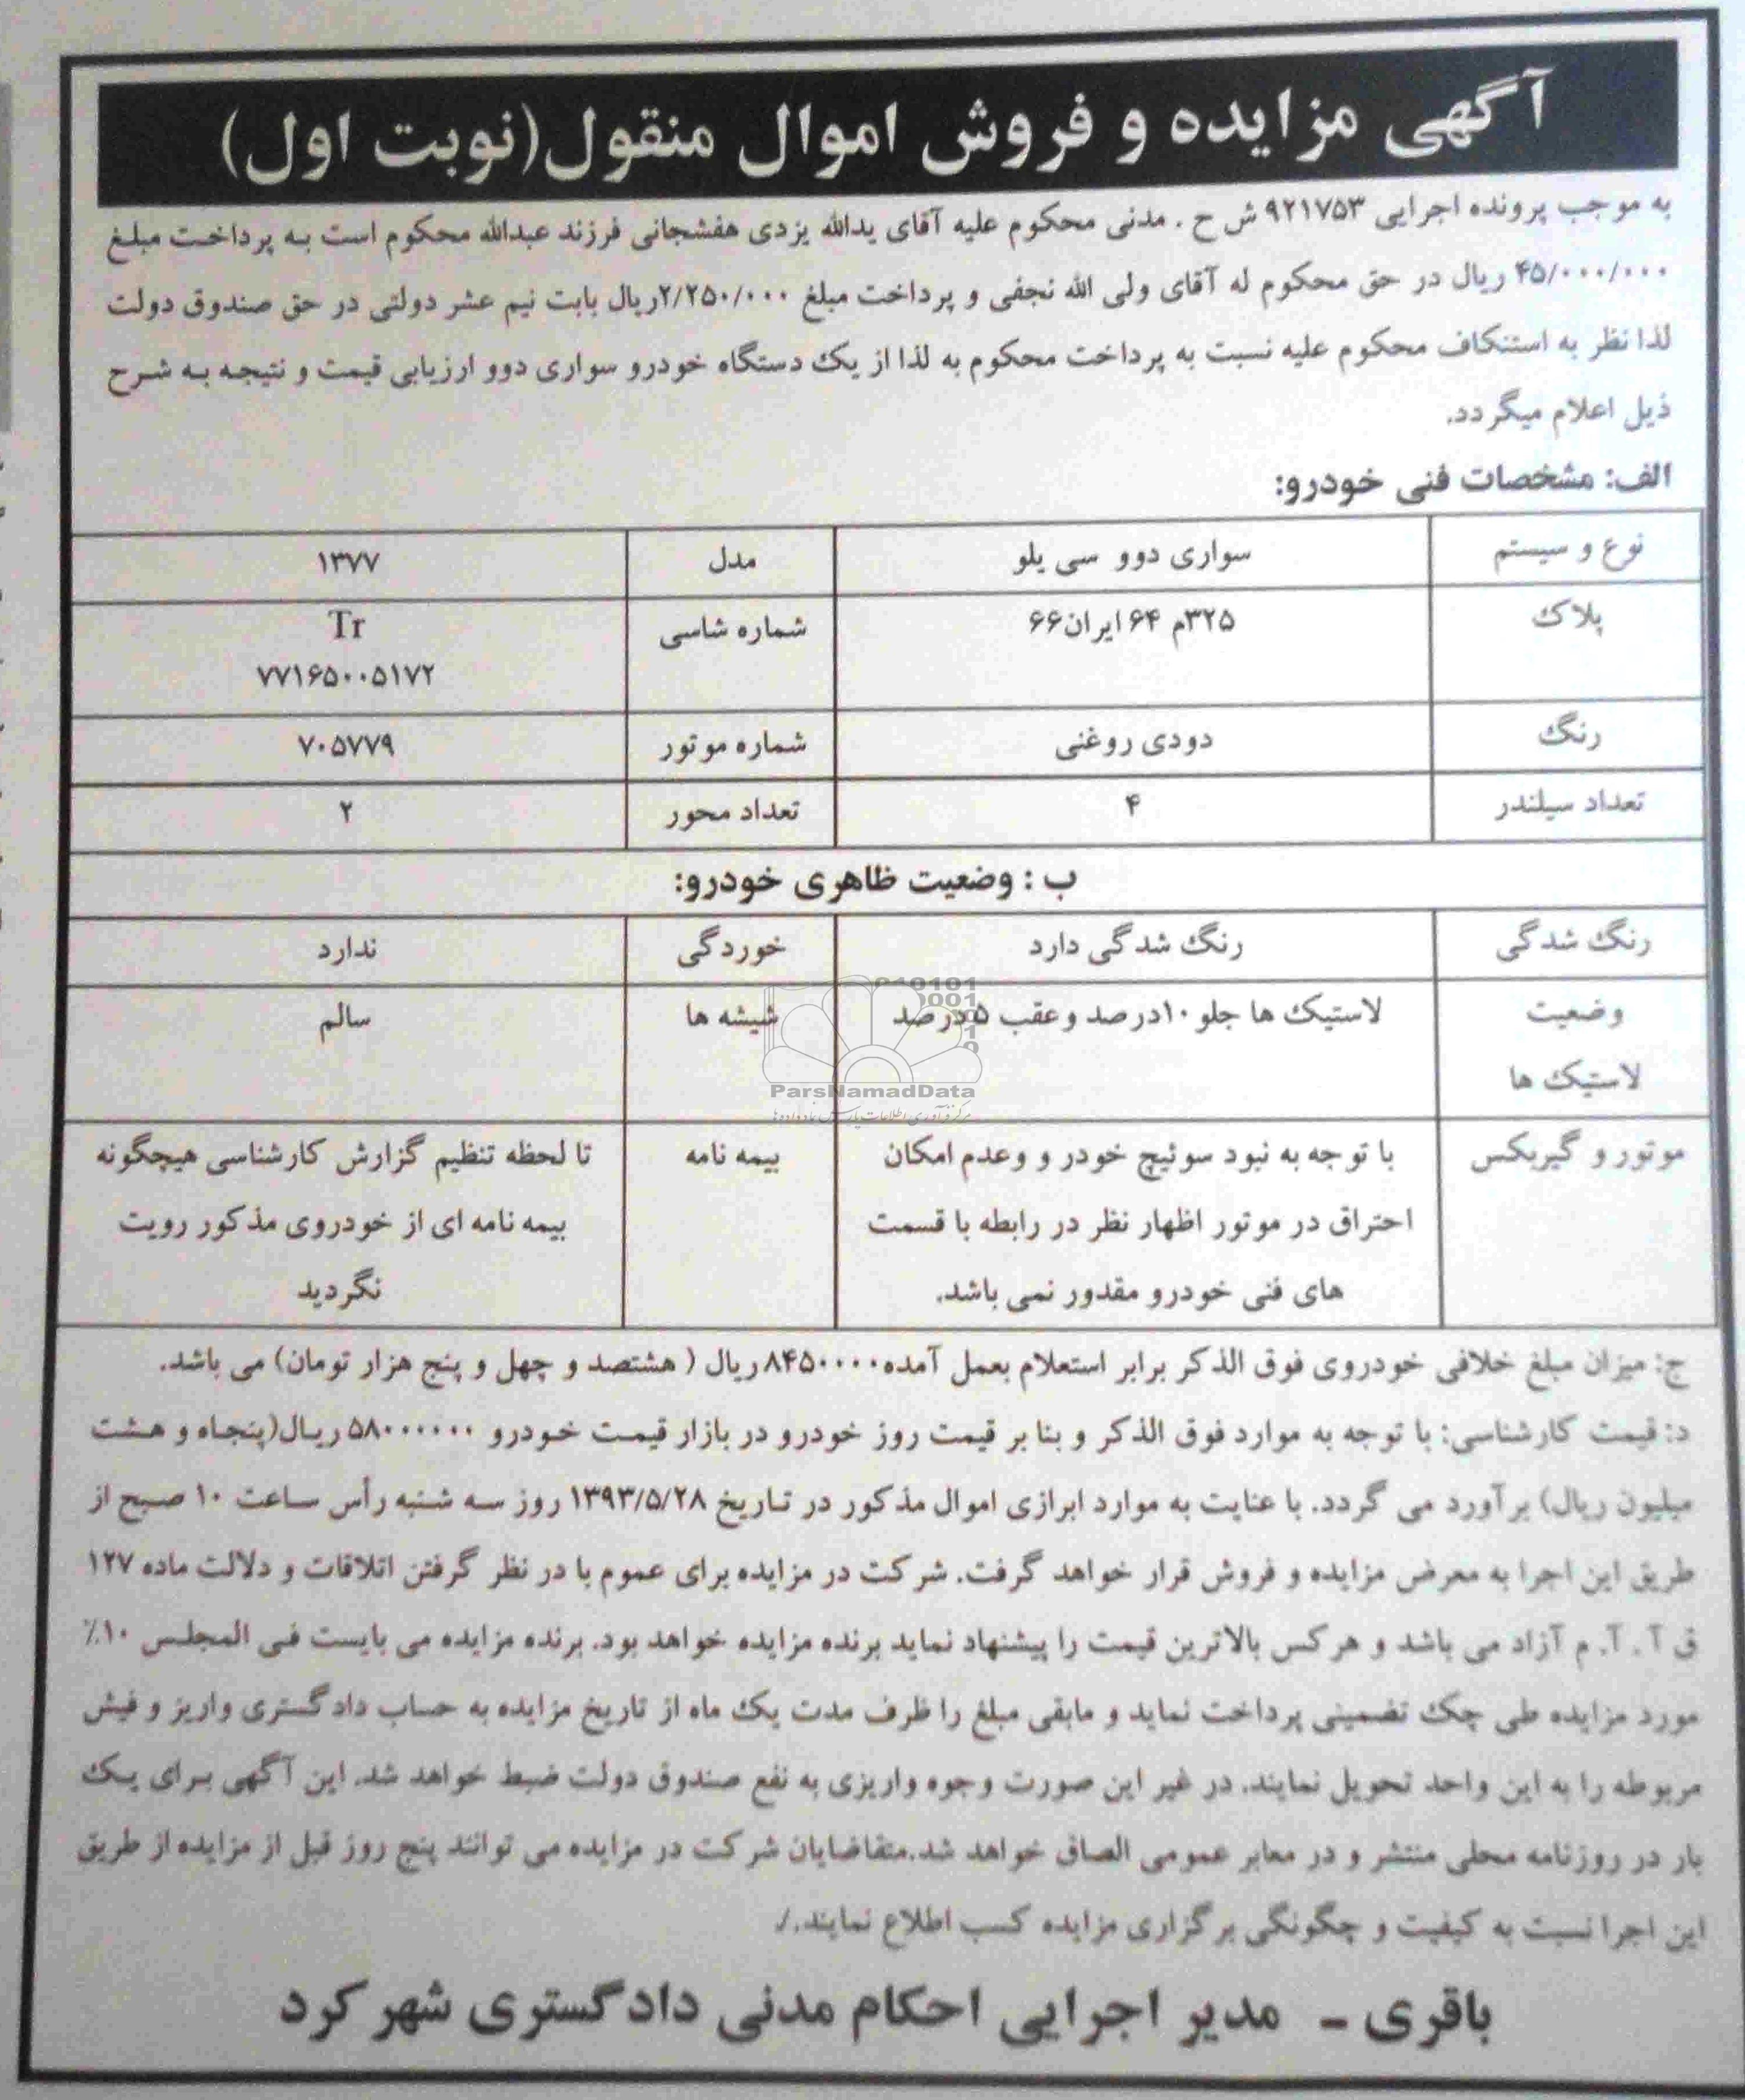 آگهی مزایده و فروش اموال منقول(نوبت اول)
به موجب پرونده اجرایی ۹۲۱۷۵۳ ش ح . مدنی محکوم علیه آقای یدالله یزدی هفشجانی فرزند عبدالله محکوم است به پرداخت مبلغ
۴۵/۰۰۰/۰۰۰ ریال در حق محکوم له آقای ولی الله نجفی و پرداخت مبلغ ۲/۲۵۰/۰۰۰ریال بابت نیم عشر دولتی در حق صندوق دولت
لذا نظر به استنکاف محکوم علیه نسبت به پرداخت محکوم به لذا از یک دستگاه خودرو سواری دوو ارزیابی قیمت و نتیجه به شرح
ذیل اعلام میگردد.
الف: مشخصات فنی خودرو:
نوع و سیستم سواری دوو سی یلو مدل ۱۳۷۷
پلاک ۳۲۵م ۶۴ ایران۶۶ شماره شاسی Tr
۷۷۱۶۵۰۰۵۱۷۲
رنگ دودی روغنی شماره موتور ۷۰۵۷۷۹
تعداد سیلندر ۴ تعداد محور ۲
ب : وضعیت ظاهری خودرو:
رنگ شدگی رنگ شدگی دارد خوردگی ندارد
وضعیت لاستیک ها جلو ۱۰درصد و عقب ۵درصد شیشه ها سالم
لاستیک ها
موتور و گیربکس با توجه به نبود سوئیچ خودر و وعدم امکان بیمه نامه تا لحظه تنظیم گزارش کارشناسی هیچگونه
احتراق در موتور اظهار نظر در رابطه با قسمت بیمه نامه ای از خودروی مذکور رویت
های فنی خودرو مقدور نمی باشد. نگردید
ParsNamadData
ج: میزان مبلغ خلافی خودروی فوق الذکر برابر استعلام بعمل آمده۸۴۵۰۰۰۰ریال ( هشتصد و چهل و پنج هزار تومان) می باشد.
د: قیمت کارشناسی: با توجه به موارد فوق الذکر و بنا بر قیمت روز خودرو در بازار قیمت خودرو ۵۸۰۰۰۰۰۰ ریال(پنجاه و هشت
میلیون ریال) برآورد می گردد. با عنایت به موارد ابرازی اموال مذکور در تاریخ ۱۳۹۳/۵/۲۸ روز سه شنبه رأس ساعت ۱۰ صبح از
طریق این اجرا به معرض مزایده و فروش قرار خواهد گرفت. شرکت در مزایده برای عموم با در نظر گرفتن اتلاقات و دلالت ماده ۱۲۷
ق آ . آ. م آزاد می باشد و هرکس بالاترین قیمت را پیشنهاد نماید برنده مزایده خواهد بود. برنده مزایده می بایست فی المجلس ۱۰٪
مورد مزایده طی چک تضمینی پرداخت نماید و مابقی مبلغ را ظرف مدت یک ماه از تاریخ مزایده به حساب دادگستری واریز و فیش
مربوطه را به این واحد تحویل نمایند. در غیر این صورت وجوه واریزی به نفع صندوق دولت ضبط خواهد شد. این آگهی برای یک
بار در روزنامه محلی منتشر و در معابر عمومی الصاق خواهد شد.متقاضایان شرکت در مزایده می توانند پنج روز قبل از مزایده از طریق
این اجرا نسبت به کیفیت و چگونگی برگزاری مزایده کسب اطلاع نمایند./
باقری - مدیر اجرایی احکام مدنی دادگستری شهر کرد